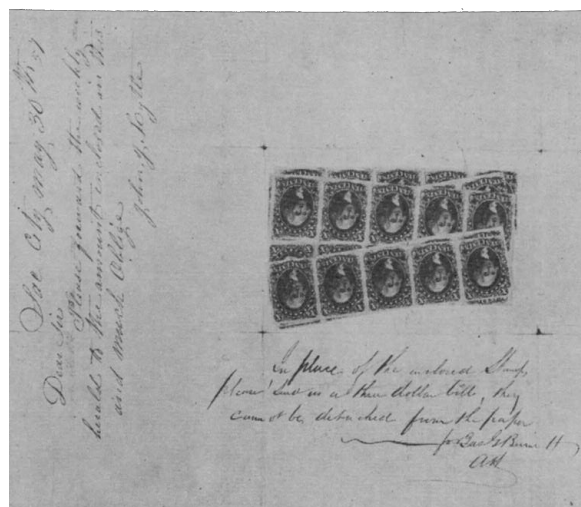 Sac City May 30th 57
Dear Sir
Please forward the weekly
herald to the amount enclosed in this
and much Oblige
John J.
In place of the enclosed Stamps
please send us a three dollar bill, they
cannot be detached from the paper
for